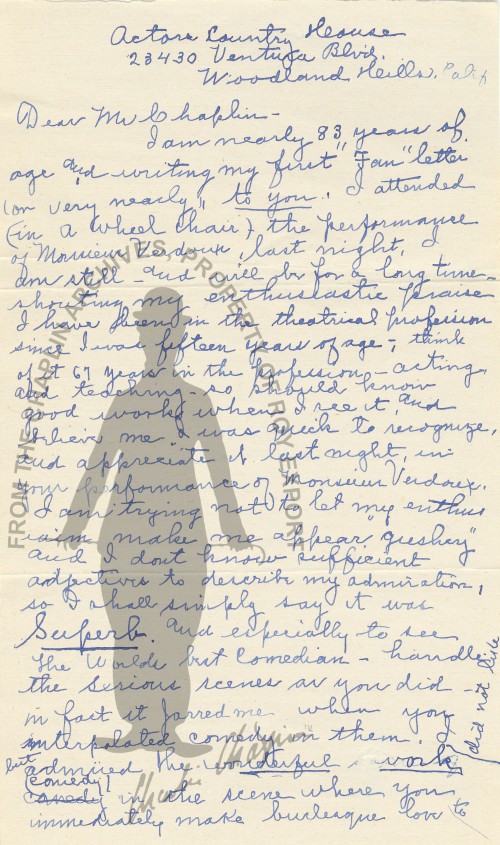 Actors Country House
23430 Ventura Blvd.
Woodland Hills. Calif
Dear Mr Chaplin -
I am nearly 83 years of
age and writing my first "Fan" letter
(or very nearly", to you. I attended
(in a wheel chair), the performance
of Monsieur Verdoux, last night, I
am still - and will be for a long time -
shouting my enthusiastic praise
I have been in the theatrical profession
since I was fifteen years of age -, think
of it 67 years in the profession - acting,
and teaching - so should know
good work when I see it, and
believe me I was quick to recognize,
and appreciate it last night, in
your performance of Monsieur Verdoux.
I am trying not to let my enthus
iasm make me appear "gushery"
and I dont know sufficient
adjectives to describe my admiration,
so I shall simply say it was
Superb. And especially to see
the Worlds best Comedian - handle
the serious scenes as you did -
in fact it jarred me when you
interpolated comedy in them. I
did not like
but admired the wonderful work
(comedy)
comedy in the scene where you
immediately make burlesque love to
FROM THE CHAPLIN ARCHIVES, PROPERTY OF ROY EXPORT
Charlie Chaplin